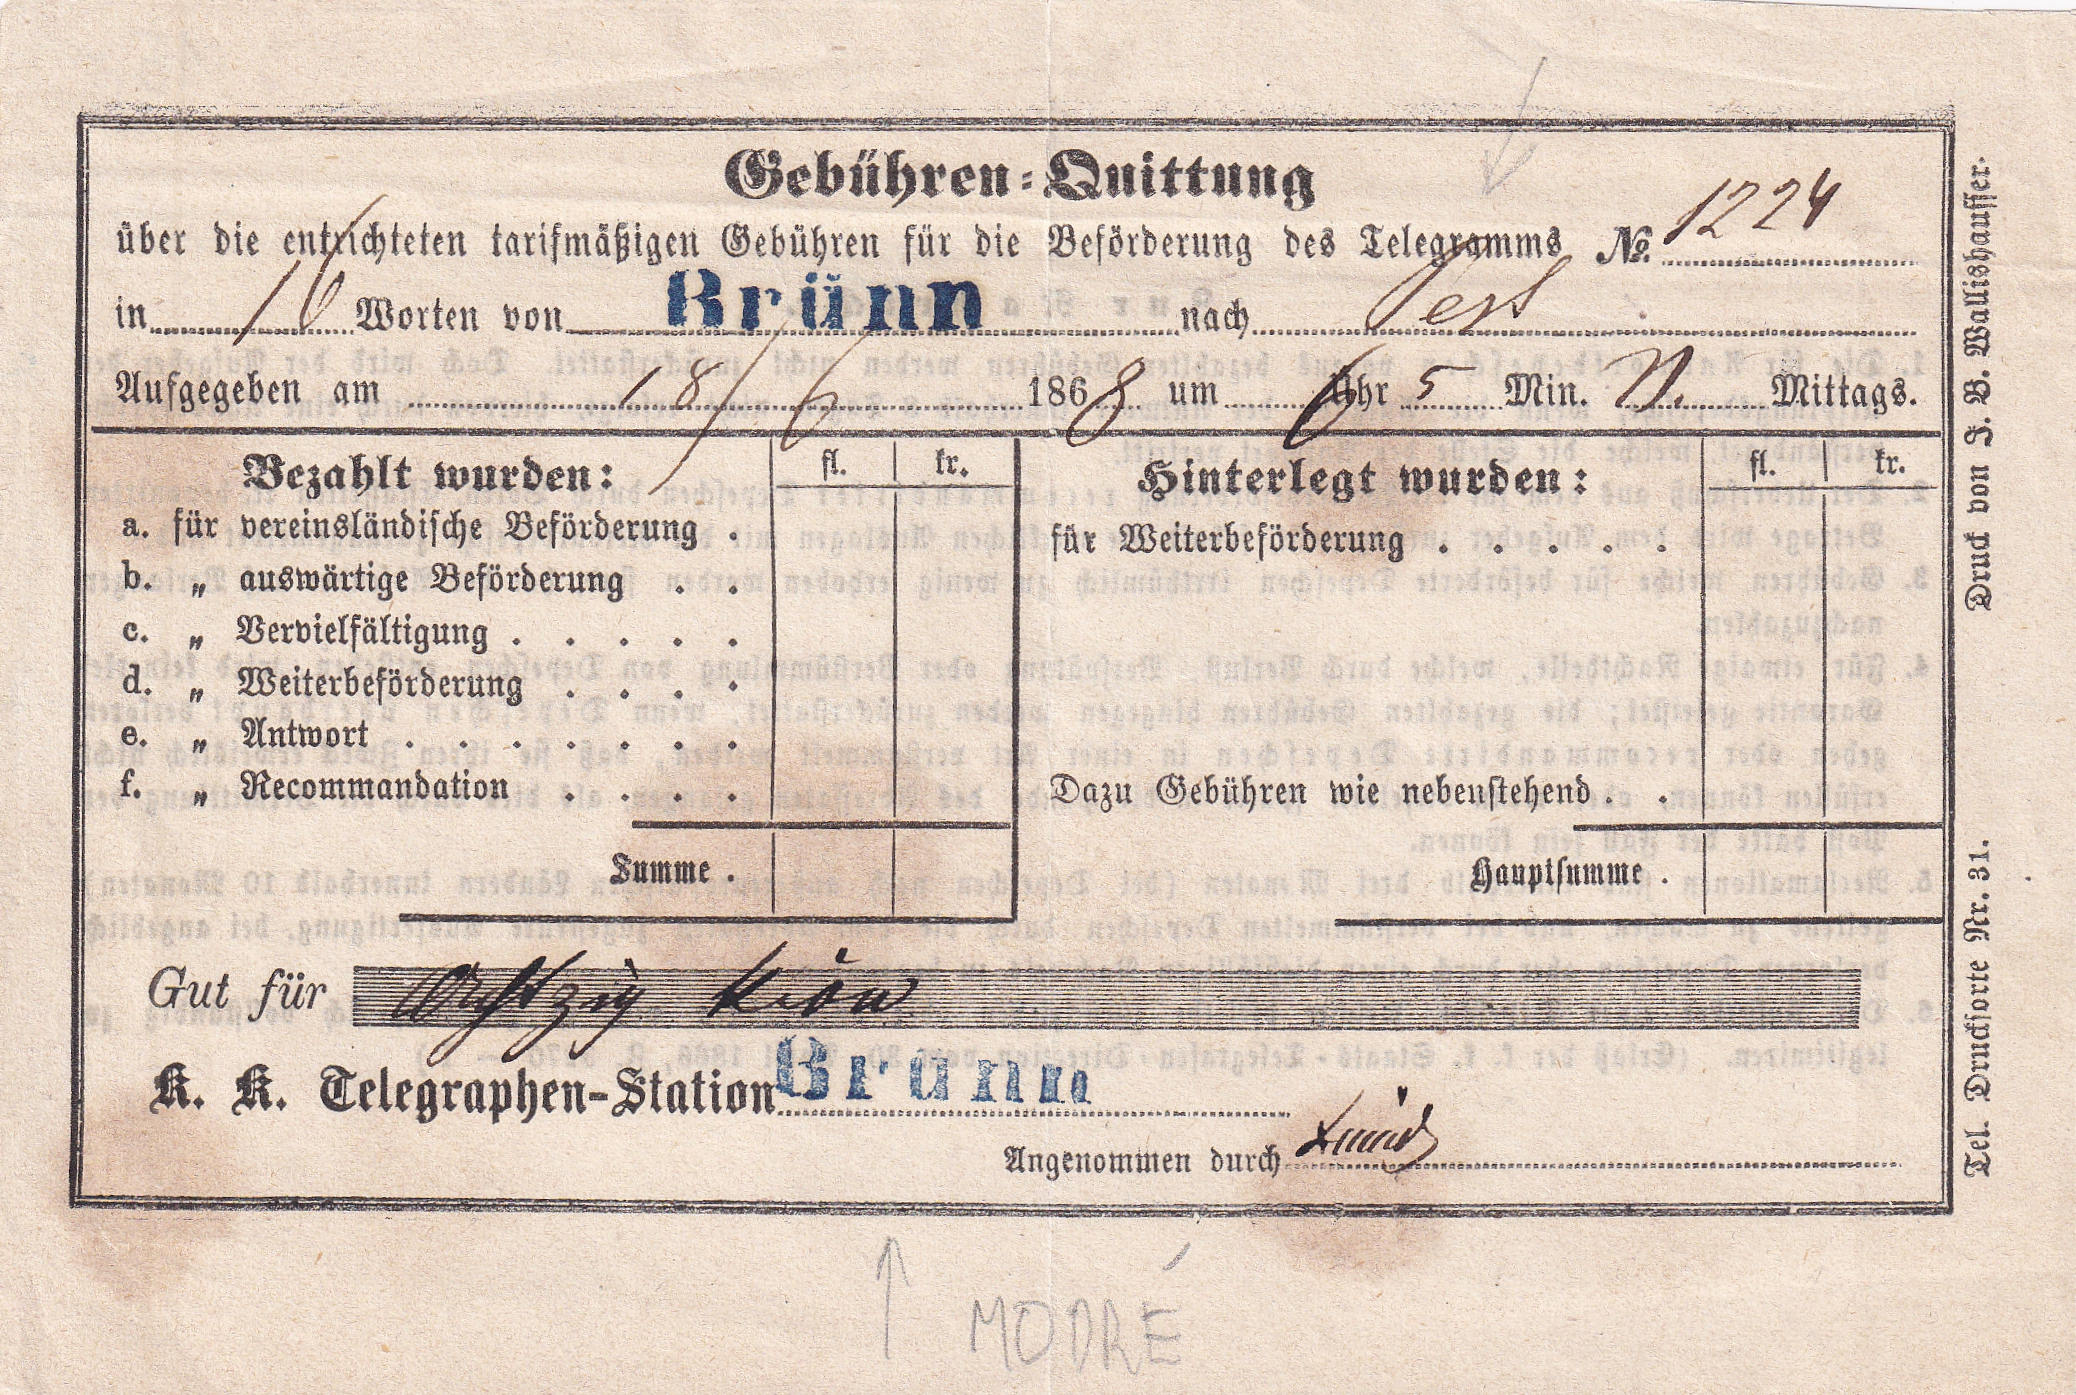 Gebühren-Quittung
über die entrichteten tarifmäßigen Gebühren für die Beförderung des Telegramms №. 1224
in 16 Worten von Brünn nach Pest
Aufgegeben am 18/6 1868 um 6 Uhr 5 Min. N. Mittags.
Bezahlt wurden: fl. kr. Hinterlegt wurden: fl. kr.
a. für vereinsländische Beförderung .
für Weiterbeförderung . . . . .
b. „ auswärtige Beförderung . .
c. „ Vervielfältigung . . . . .
d. „ Weiterbeförderung . . . .
e. „ Antwort . . . . . . .
f. „ Recommandation . . . .
Dazu Gebühren wie nebenstehend . .
Summe . Hauptsumme .
Gut für Achtzig
K. K. Telegraphen-Station Brünn
Angenommen durch
Tel. Drucksorte Nr. 31. Druck von J. B. Wallishausser.
MODRÉ